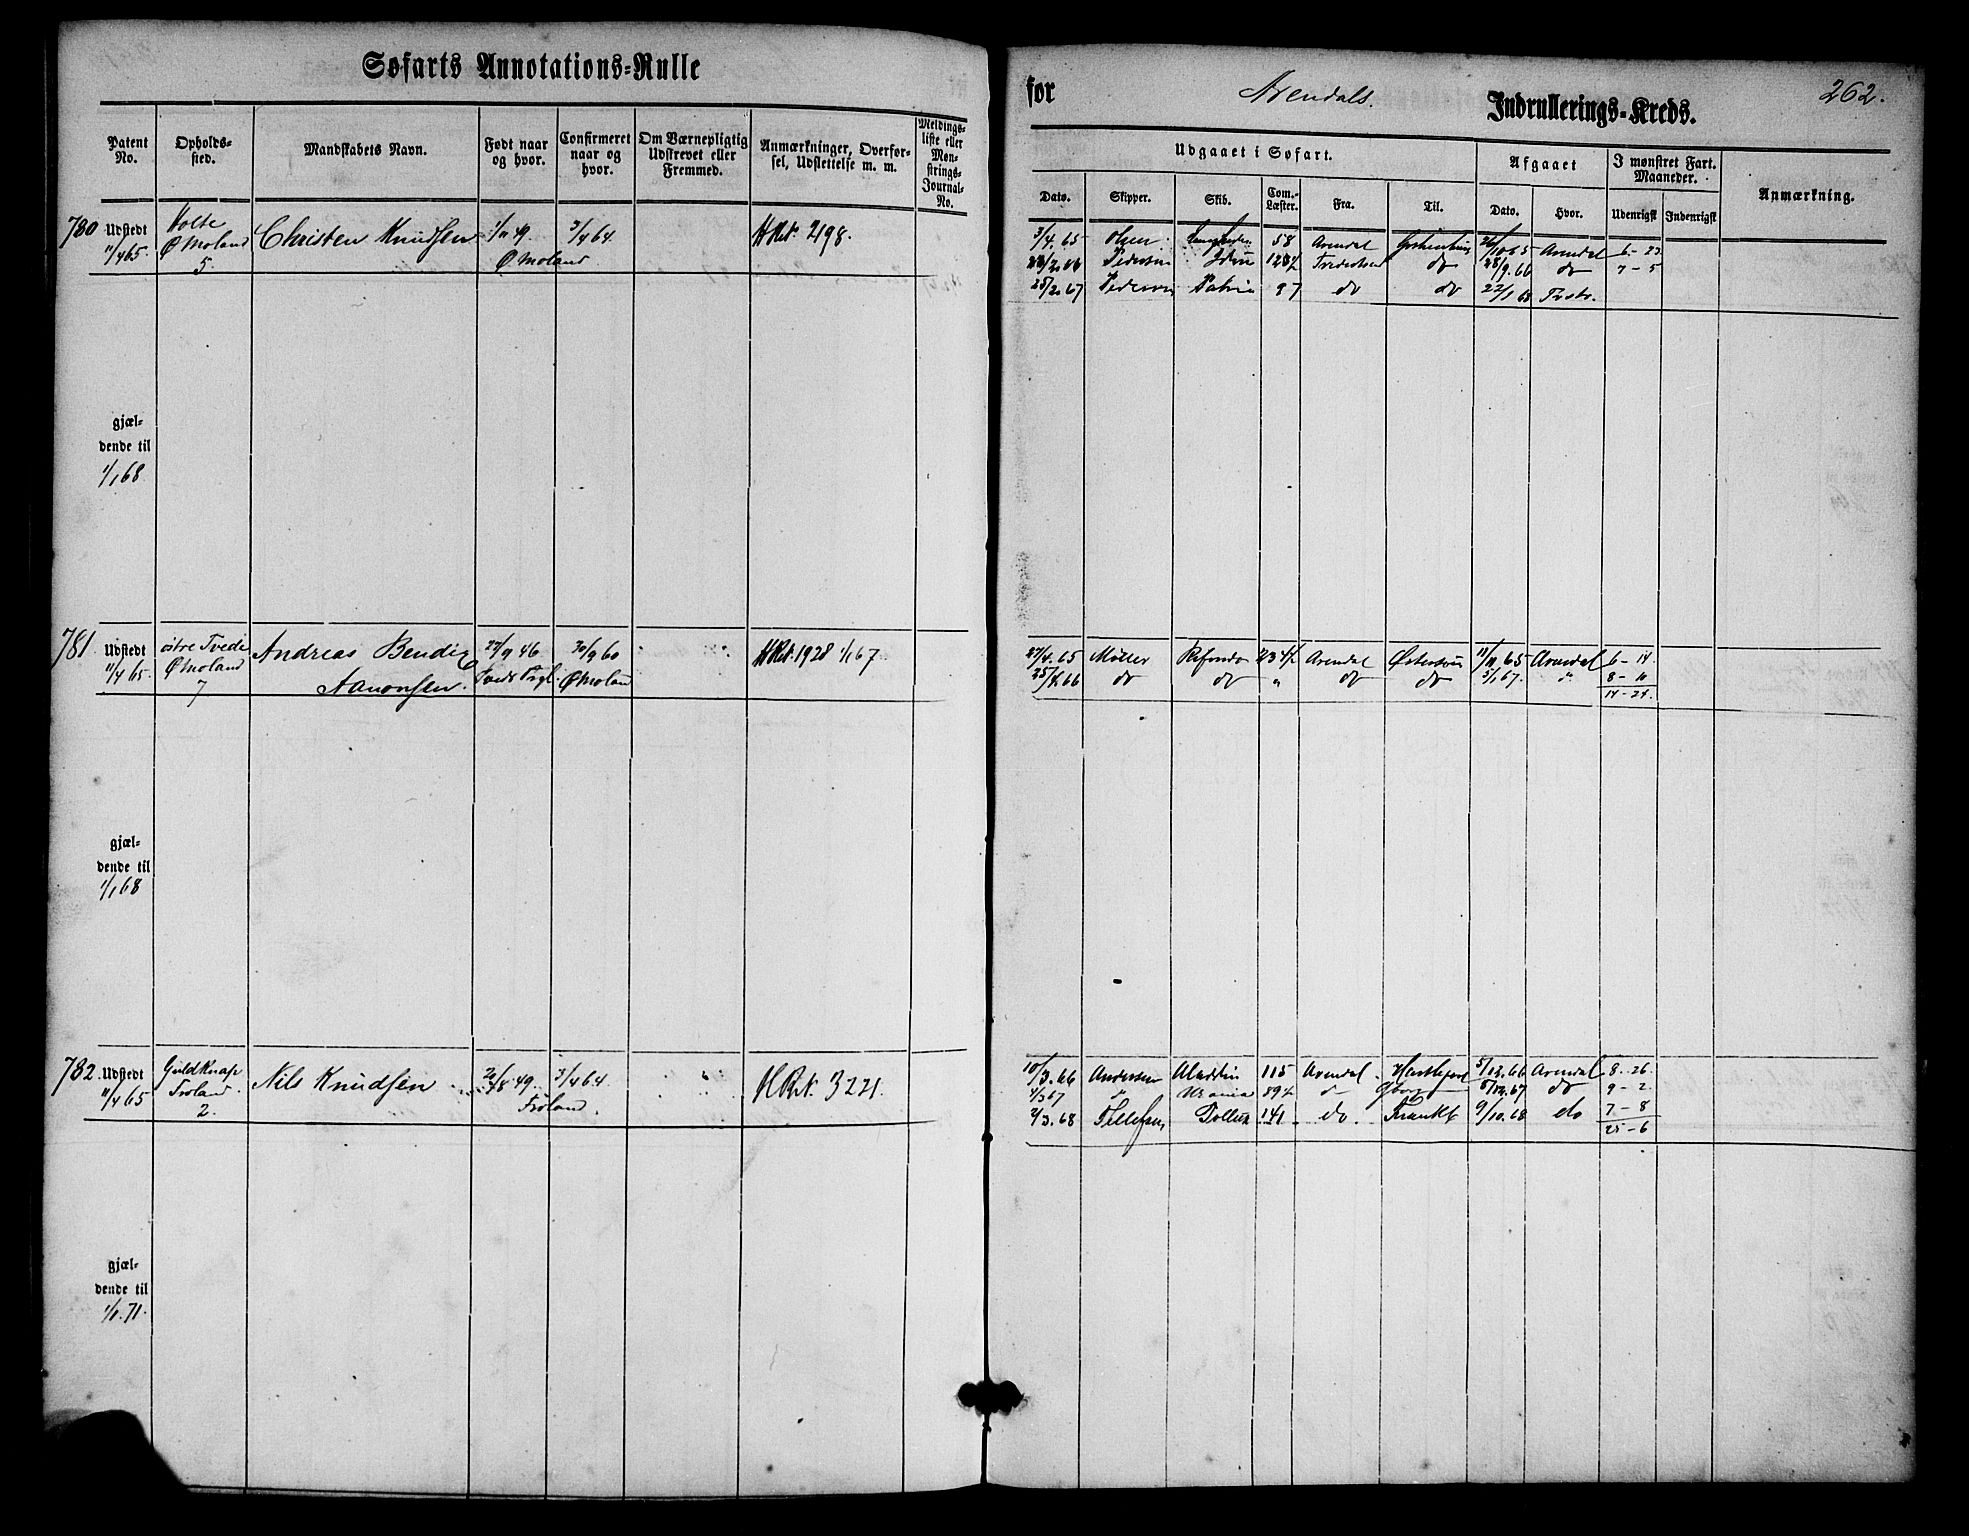 Søfarts Annotations-Rulle
Patent No.
Opholds-sted.
Mandskabets Navn.
Født naar og hvor.
Confirmeret naar og hvor.
Om Værnepligtig Udskrevet eller Fremmed.
Anmærkninger, Overførsel, Udslettelse m. m.
Meldings-liste eller Mønstrings-Journal-No.
780
Udstedt 11/4 65.
Holte Ø Moland 5.
Christen Knudsen
1/11 49 Ø. Moland
3/4 64.
H Rt. 2198.
gjæl-
dende til
1/1 68
781
Udstedt 11/4 65.
østre Tvede Ø Moland 7
Andreas Bendix
Aanonsen.
22/9 46
30/9 60 Ø Moland
H Rt. 1928 1/1 67
gjæl-
dende til
1/1 68
782.
Udstedt 11/4 65
Guldknap Froland. 2.
Nils Knudsen
20/8 49. Froland.
3/4 64.
H Rt. 3221.
gjæl-
dende til
1/1. 71.
for Arendals. Indrullerings-Kreds. 262.
Udgaaet i Søfart.
Afgaaet
I mønstret Fart. Maaneder.
Anmærkning.
Dato. Skipper. Skib. Com.-Læster. Fra. Til. Dato. Hvor. Udenrigsk Indenrigsk
3/4. 65 Olsen 58 Arendal 26/10 65 Arendal 6 - 23
Pedersen do 28/9. 66 do 7 - 5
25/2. 67 Pedersen Patria 97 do do 22/1 68
27/4. 65 Møller Arendal Østersøen 11/11. 65 Arendal 6 - 14.
25/4 66 do do " do do 5/1 67. " 8 - 10
14 - 24.
10/3. 66 Andersen Aladdin 115 Arendal 5/12. 66 Arendal 8 - 26.
4/3 67 " Urania 89½ " 5/12. 67 do 9 - 2
2/3. 68 Tellefsen 141 do. 9/10. 68 do 7 - 8
25 - 6